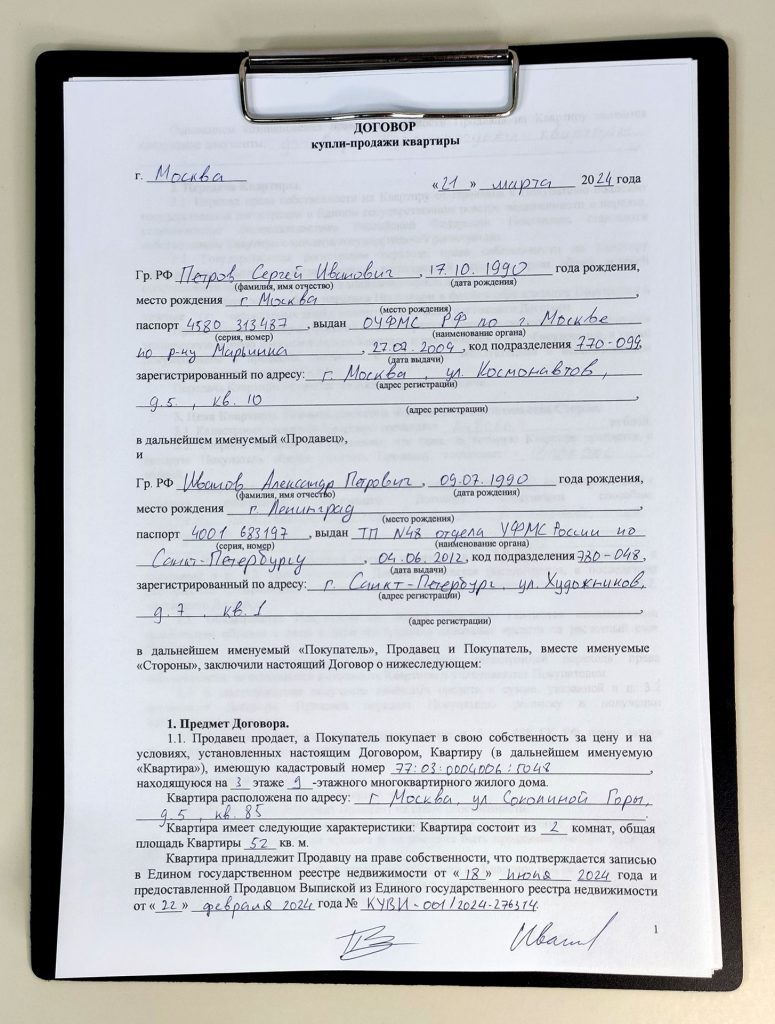 ДОГОВОР
купли-продажи квартиры
г. Москва «21» марта 2024 года
Гр. РФ Петров Сергей Иванович, 17.10.1990 года рождения,
(фамилия, имя отчество) (дата рождения)
место рождения г Москва,
(место рождения)
паспорт 4580 313487, выдан ОУФМС РФ по г. Москве
(серия, номер) (наименование органа)
по р-ну Марьинка, 27.09.2009, код подразделения 770-099,
(дата выдачи)
зарегистрированный по адресу: г. Москва, ул. Космонавтов,
(адрес регистрации)
д.5, кв. 10,
(адрес регистрации)
в дальнейшем именуемый «Продавец»,
и
Гр. РФ Иванов Александр Петрович, 09.07.1990 года рождения,
(фамилия, имя отчество) (дата рождения)
место рождения г. Ленинград,
(место рождения)
паспорт 4001 683197, выдан ТП N48 отдела УФМС России по
(серия, номер) (наименование органа)
Санкт-Петербургу, 04.06.2012, код подразделения 780-048,
(дата выдачи)
зарегистрированный по адресу: г. Санкт-Петербург, ул. Художников,
(адрес регистрации)
д. 7, кв. 1,
(адрес регистрации)
в дальнейшем именуемый «Покупатель», Продавец и Покупатель, вместе именуемые
«Стороны», заключили настоящий Договор о нижеследующем:
1. Предмет Договора.
1.1. Продавец продает, а Покупатель покупает в свою собственность за цену и на
условиях, установленных настоящим Договором, Квартиру (в дальнейшем именуемую
«Квартира»), имеющую кадастровый номер 77:03:0004006:5048,
находящуюся на 3 этаже 9-этажного многоквартирного жилого дома.
Квартира расположена по адресу: г Москва, ул Соколиной Горы,
д.5, кв. 85.
Квартира имеет следующие характеристики: Квартира состоит из 2 комнат, общая
площадь Квартиры 52 кв. м.
Квартира принадлежит Продавцу на праве собственности, что подтверждается записью
в Едином государственном реестре недвижимости от «18» июля 2024 года и
предоставленной Продавцом Выпиской из Единого государственного реестра недвижимости
от «22» февраля 2024 года № КУВИ-001/2024-276314.
Иванов
1